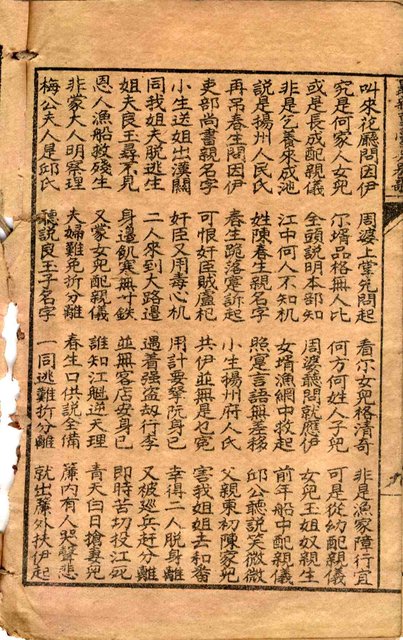 叫來花廳問因伊 周婆上堂兒問起 看尔女兒格清奇 非是漁家障行宜
究是何家人女兒 伱壻品格無人比 何方何姓人子兒 可是從幼配親儀
或是長成配親儀 全頭說明本部知 周婆聽問就應伊 女兒王姐奴親生
非是乞養來成池 江中何人不知机 女壻漁網中救起 前年船中配親儀
說是揚州人民氏 姓陳春生親名字 照寔言語無差移 邱公聽說笑微微
再吊春生問因伊 春生跪落訴起 小生揚州府人氏 父親東初陳家兒
吏部尚書親名字 可恨奸臣賊盧杞 共伊並無是乜寃 害我姐姐去和番
小生送姐出漢關 奸臣又用毒心机 用計要拏阮身己 幸得二人脫身離
同我姐夫脫逃生 二人來到大路邊 遇着强盜刼行李 又被巡兵赶分離
姐夫良玉尋不見 身邊飢寒無寸鉄 並無客店安身已 即時苦切投江死
恩人漁船救殘生 又蒙女兒配親儀 誰知江魁逆天理 青天白日搶妻兒
非蒙大人明察理 夫婦難免折分離 春生口供說全備 簾內有人哭聲悲
梅公夫人是邱氏 聽說良玉子名字 一同逃難折分離 就出簾外扶伊起